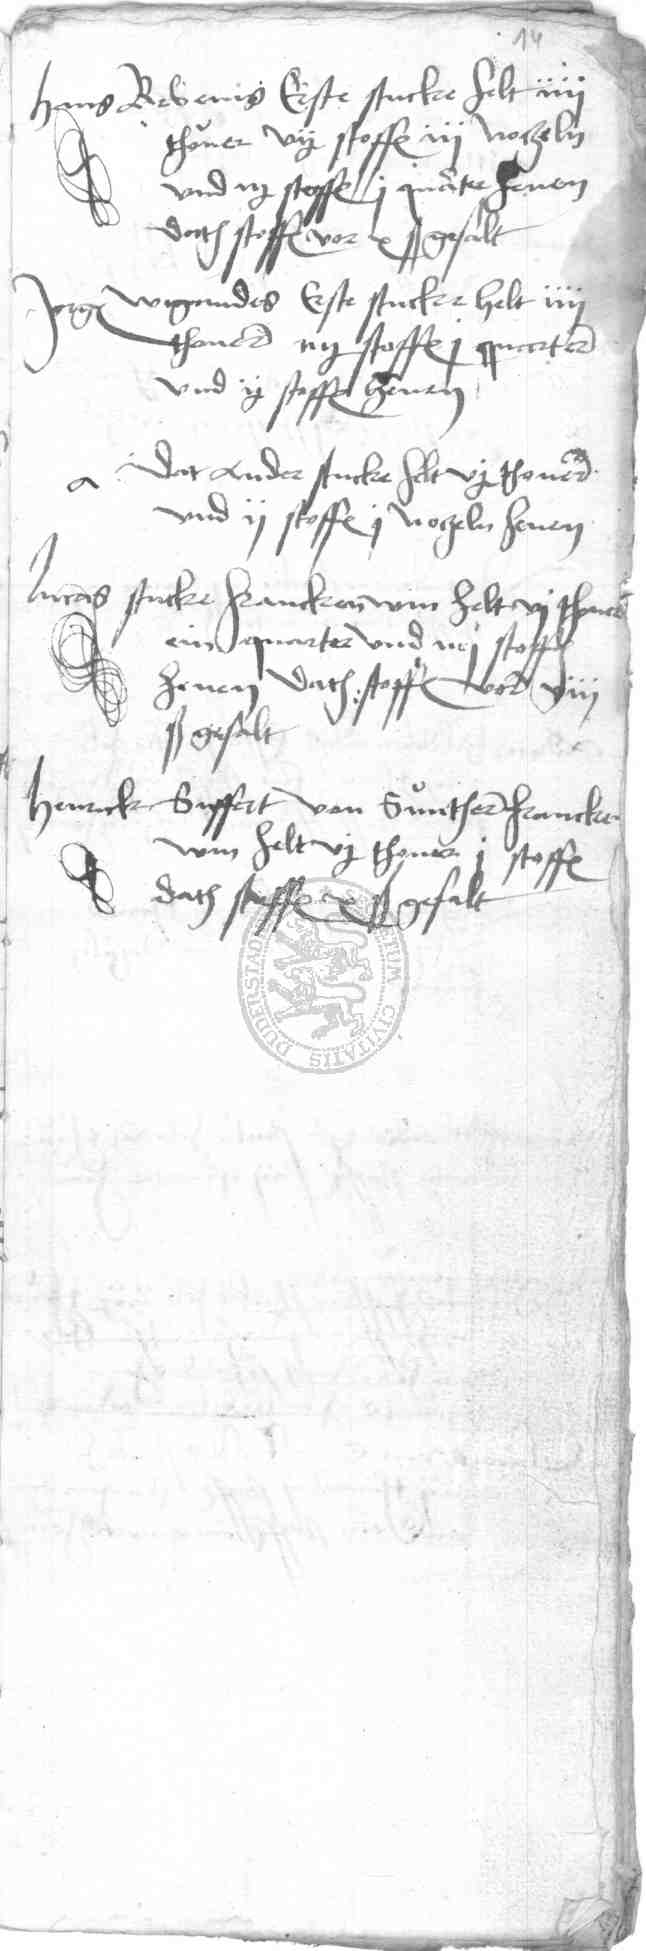 14
Hans Arbenis Erste stucke helt iiij
thoner vij stoffe iij nosseln
vnd iij stoffe j quarter henen
dath stoffe vor x ß gesalt
Jorge wigandes Erste stucke helt iiij
thoner iij stoffe j quarter
vnd ij stoffe henen
Dat ander stucke helt vj thoner
vnd ij stoffe j nosseln henen
Lucas stucke francken win helt vj thoner
ein quarter vnd iij stoffe
henen dath stoffe vor viij
ß gesalt
Henrick Siffert von Sunther francken
win helt vj thoner j stoffe
dath stoffe x ß gesalt
DUDERSTAD CIVITATIS